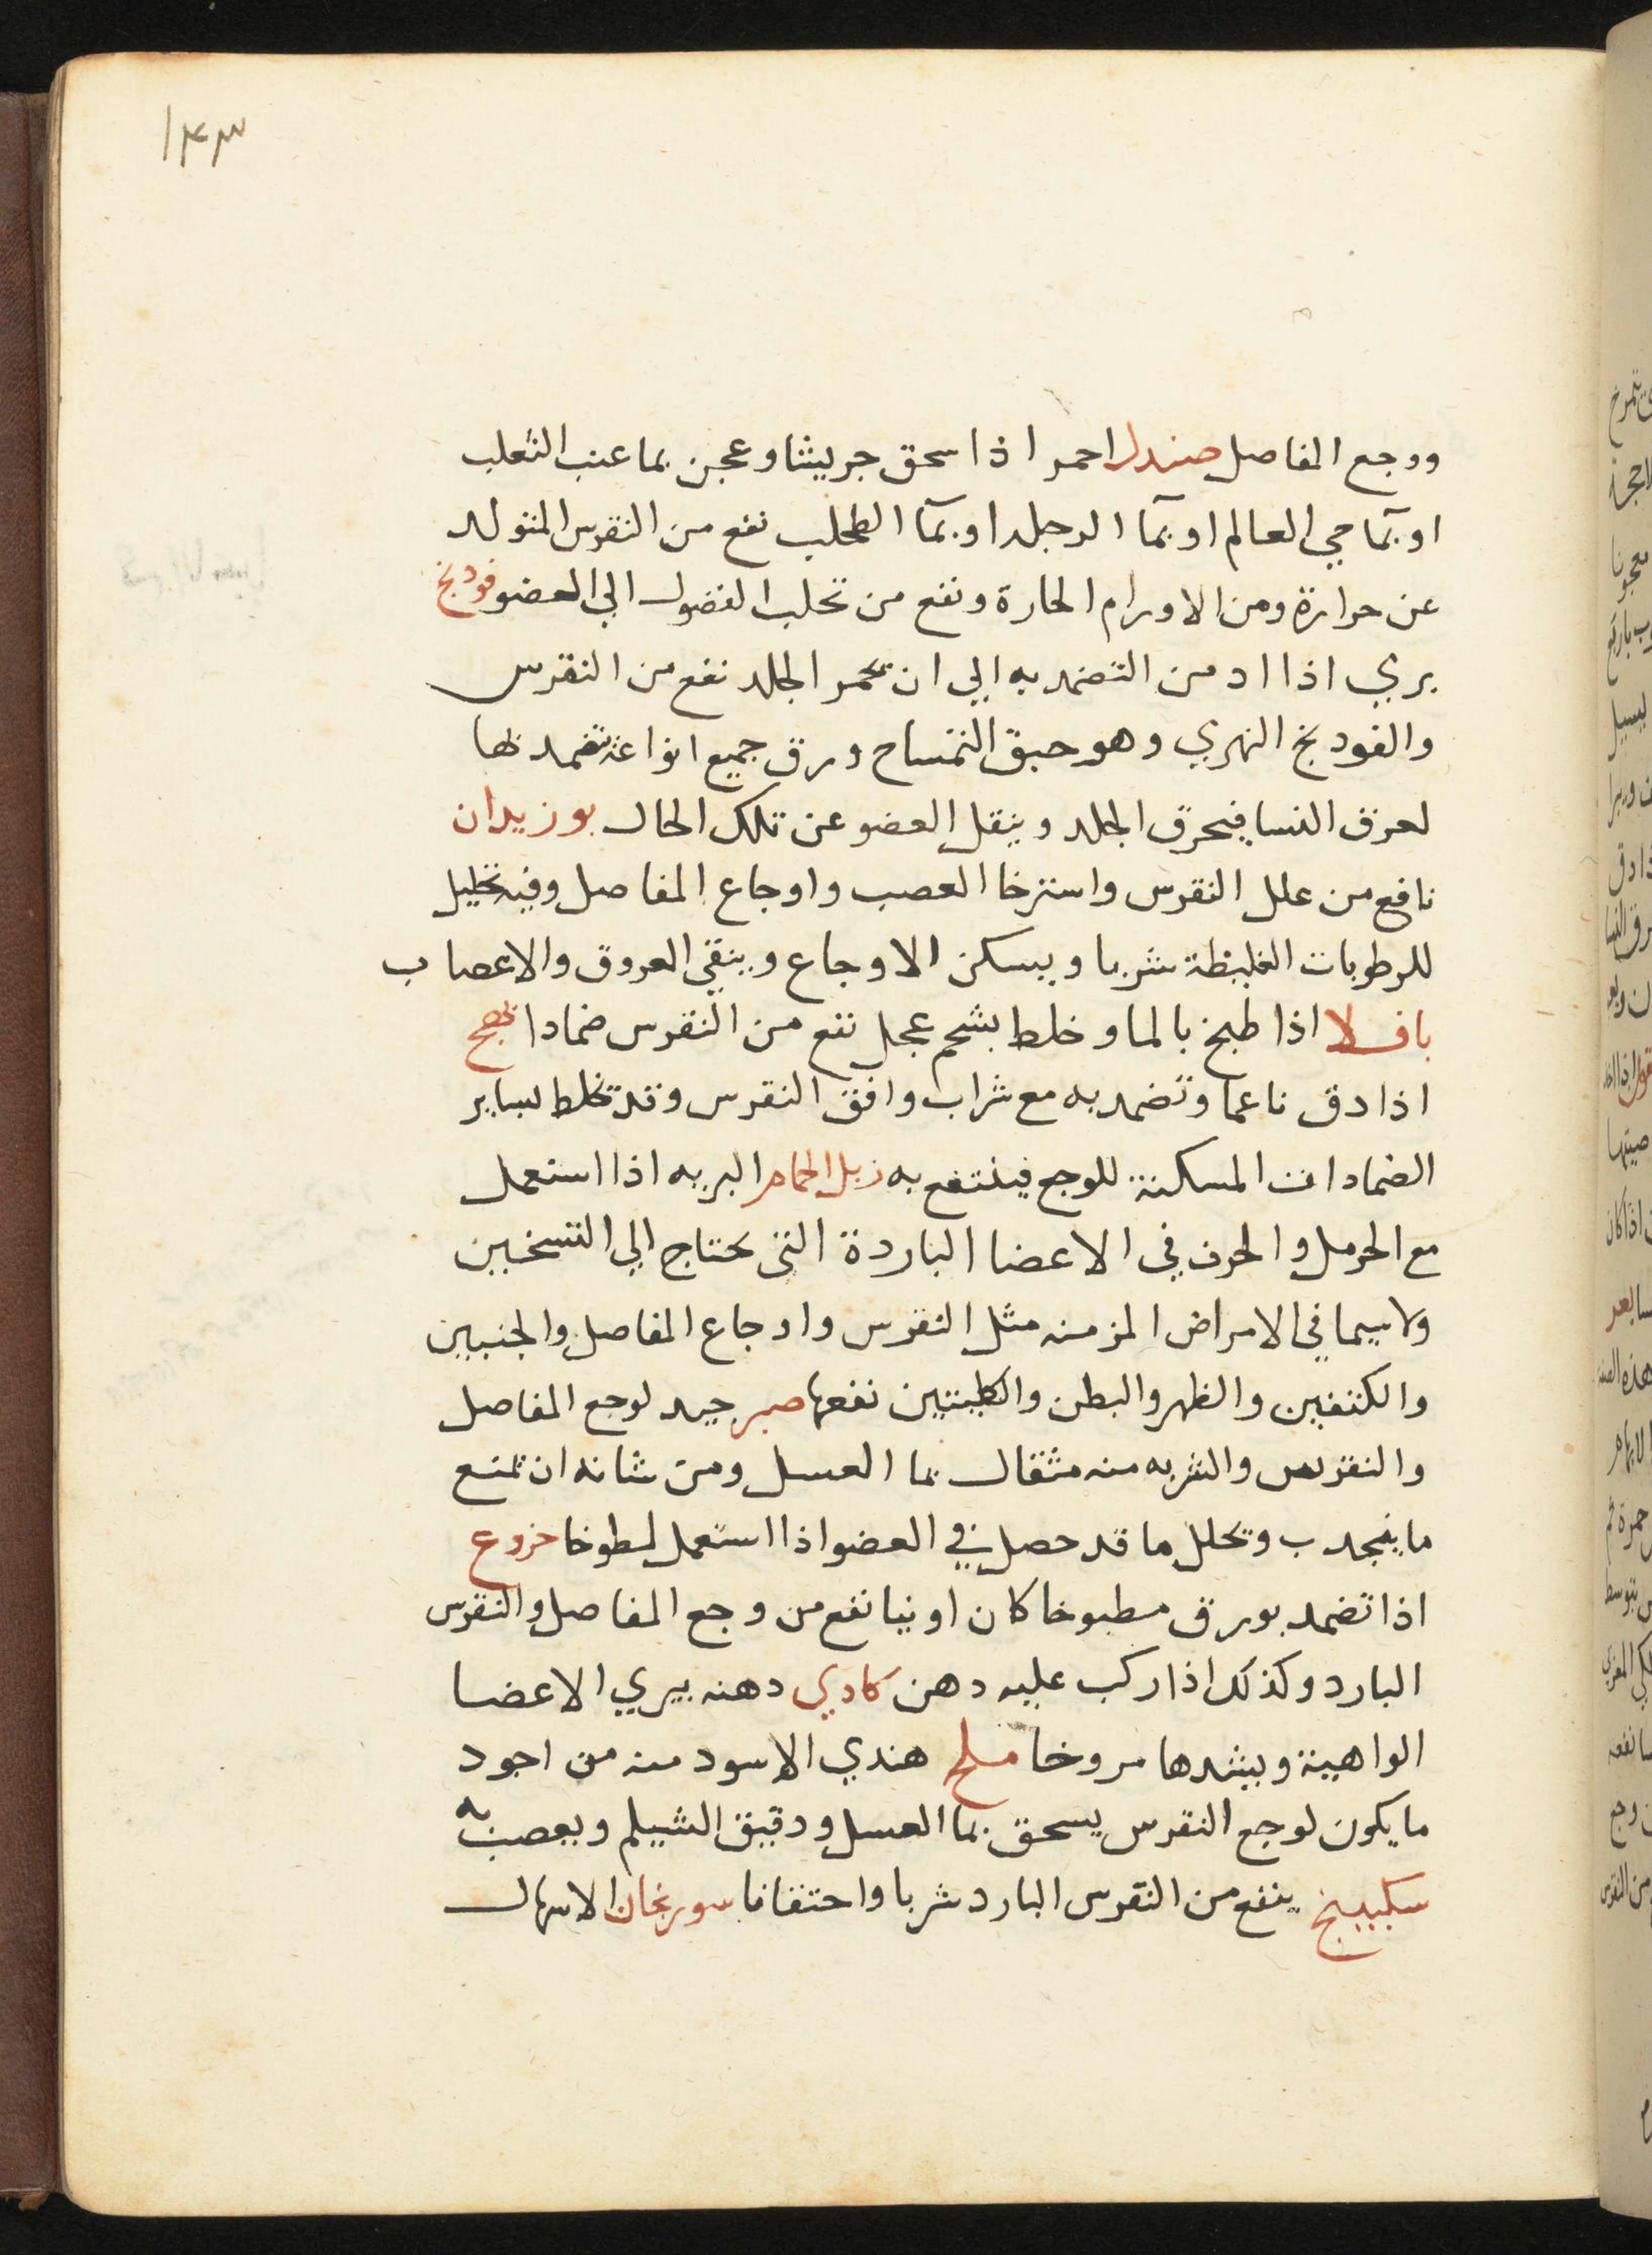 ١٤٣
ووجع المفاصل صندل احمر اذا سحق جريشا وعجن بما عنب الثعلب
او بمآ حي العالم او بمآ الرجله او بمآ الطحلب نفع من النقرس المتولد
عن حرارة ومن الاورام الحارة ونفع من تحلب الفضول الي العضو فودنج
بري اذا ادمن التضمد به الي ان يحمر الجلد نفع من النقرس
والفودنج النهري وهو حبق التمساح ورق جميع انواعه تضمد بها
لعرق النسا فيحرق الجلد وينقل العضو عن تلك الحال بوزيدان
نافع من علل النقرس واسترخا العصب واوجاع المفاصل وفيه تحليل
للرطوبات الغليظة شربا ويسكن الاوجاع وينقي العروق والاعصاب
باقلا اذا طبخ بالما وخلط بشحم عجل نفع من النقرس ضمادا
اذا دق ناعما وتضمد به مع شراب وافق النقرس وقد تخلط بساير
الضمادات المسكنة للوجع فينتفع به زبل الحمام البريه اذا استعمل
مع الحرمل والحرف في الاعضا الباردة التي تحتاج الي التسخين
ولاسيما في الامراض المزمنه مثل النقرس واوجاع المفاصل والجنبين
والكتفين والظهر والبطن والكليتين نفعها صبر جيد لوجع المفاصل
والنقرس والشربه منه مثقال بما العسل ومن شانه ان تمنع
ما ينجدب وتحلل ما قد حصل في العضو اذا استعمل لطوخا خروع
اذا تضمد بورق مطبوخا كان او نيا نفع من وجع المفاصل والنقرس
البارد وكذلك اذا ركب عليه دهن كادي دهنه يبري الاعضا
الواهية ويشدها مروخا ملح هندي الاسود منه من اجود
ما يكون لوجع النقرس يسحق بما العسل ودقيق الشيلم ويعصب به
سكبينج ينفع من النقرس البارد شربا واحتقانا سورنجان الاسهال